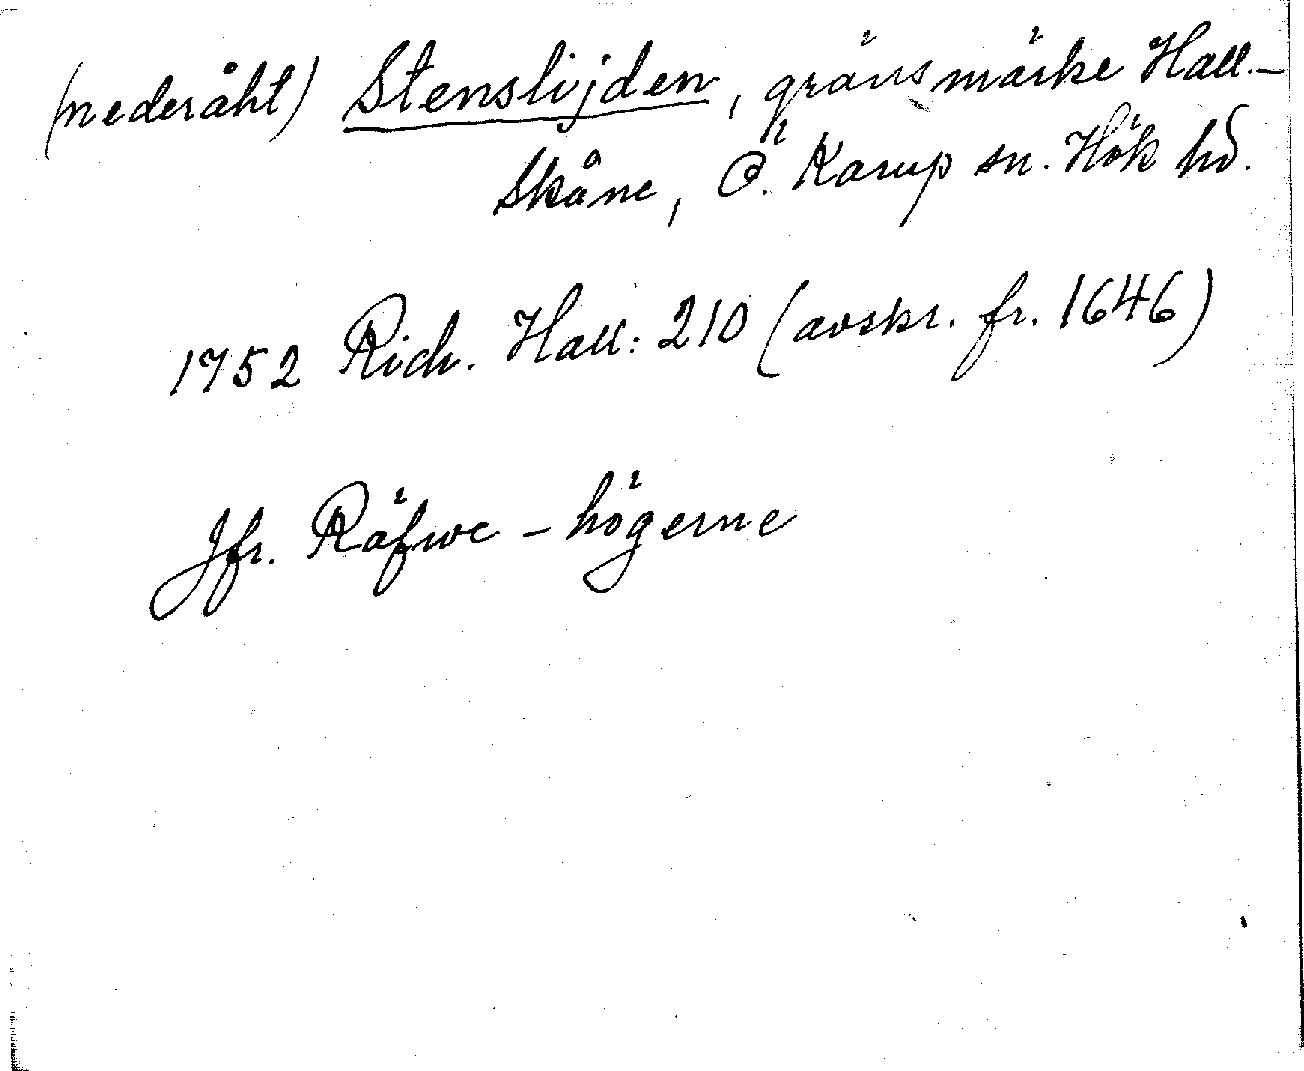 (nederåht) Stenslijden, gränsmärke Hall.-
Skåne, Ö. Karup sn. Hök hd.
1752 Rich. Hall: 210 (avskr. fr. 1646)
Jfr. Räfwe-högerne